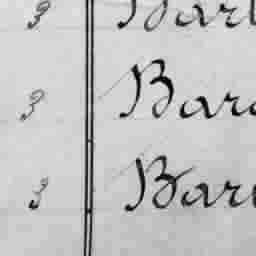 3 Bart
3 Bar
3 Bar